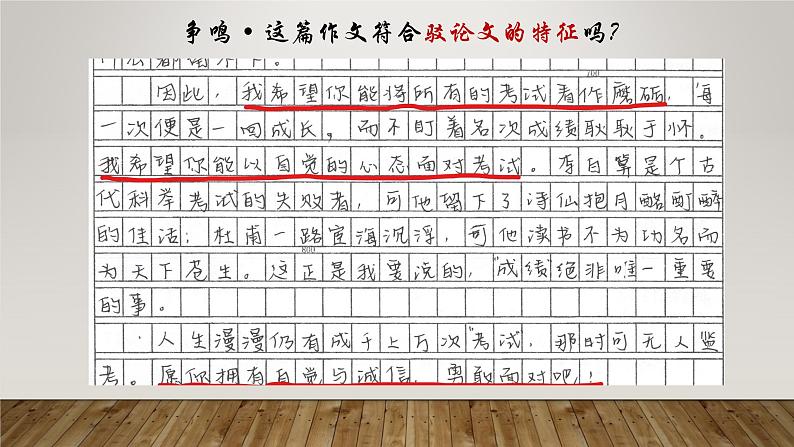 争鸣·这篇作文符合驳论文的特征吗？
700
因此，我希望你能将所有的考试看作磨砺，每
一次便是一回成长，而不盯着名次成绩耿耿于怀。
我希望你能以自觉的心态面对考试。李白算是个古
代科举考试的失败者，可他留下了诗仙抱月酩酊醉
的佳话；杜甫一路宦海沉浮，可他读书不为功名而
800
为天下苍生。这正是我要说的，“成绩”绝非唯一重要
的事。
人生漫漫仍有成千上万次“考试”，那时可无人监
考。愿你拥有自觉与诚信，勇敢面对吧！